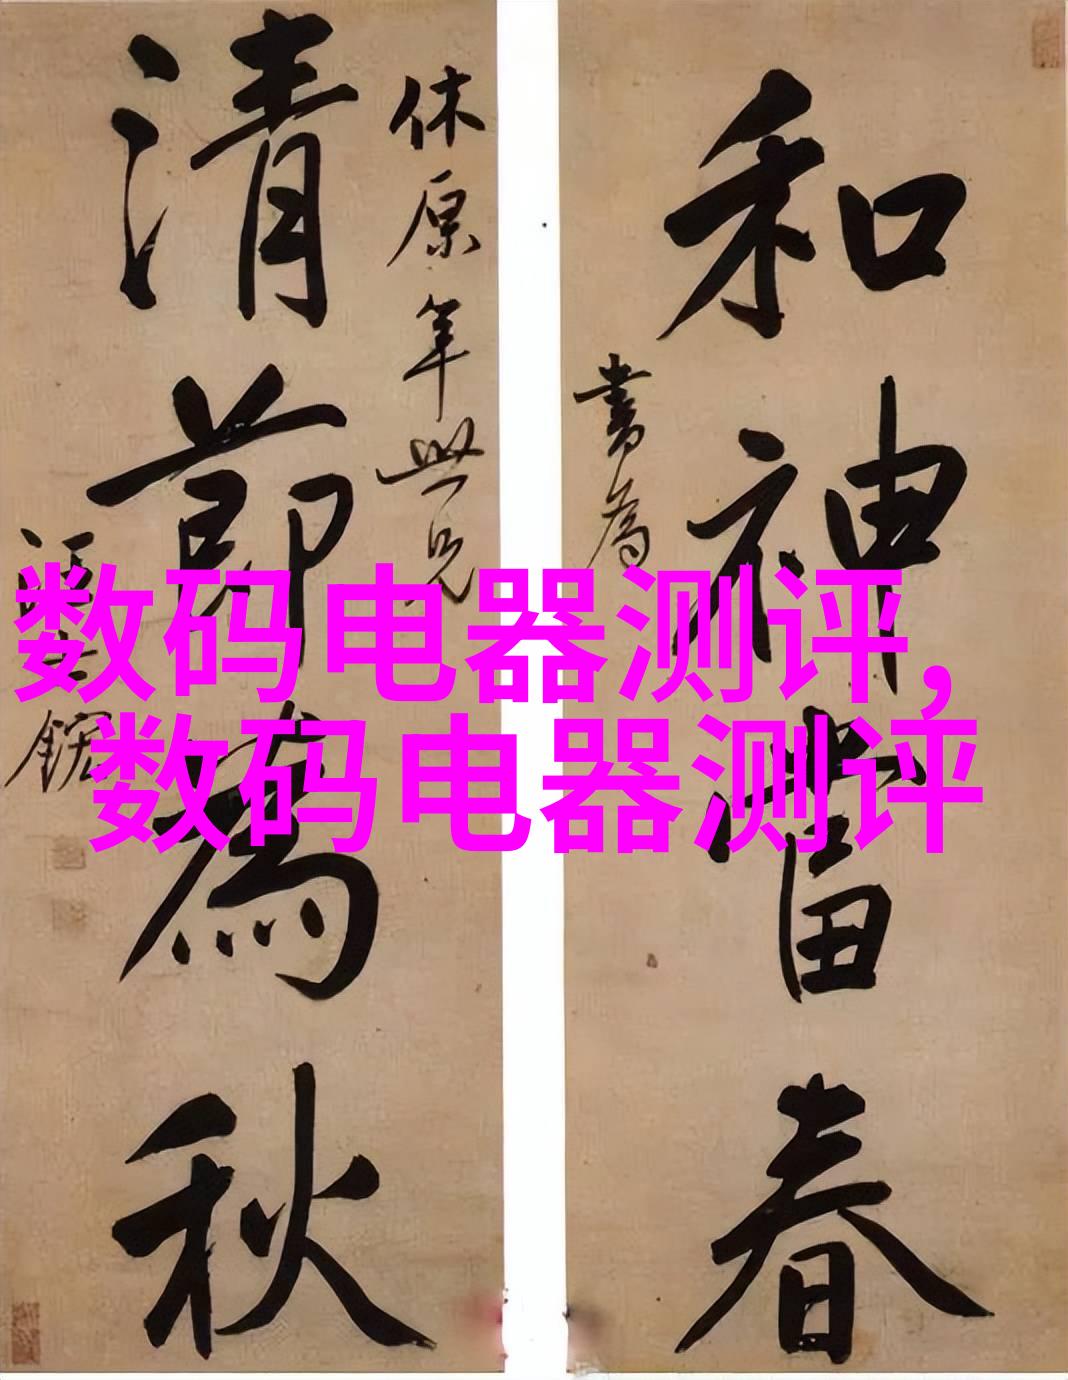 和神當春
書為
休原年世兄
清節為秋
汪士鋐
数码电器测评,
数码电器测评